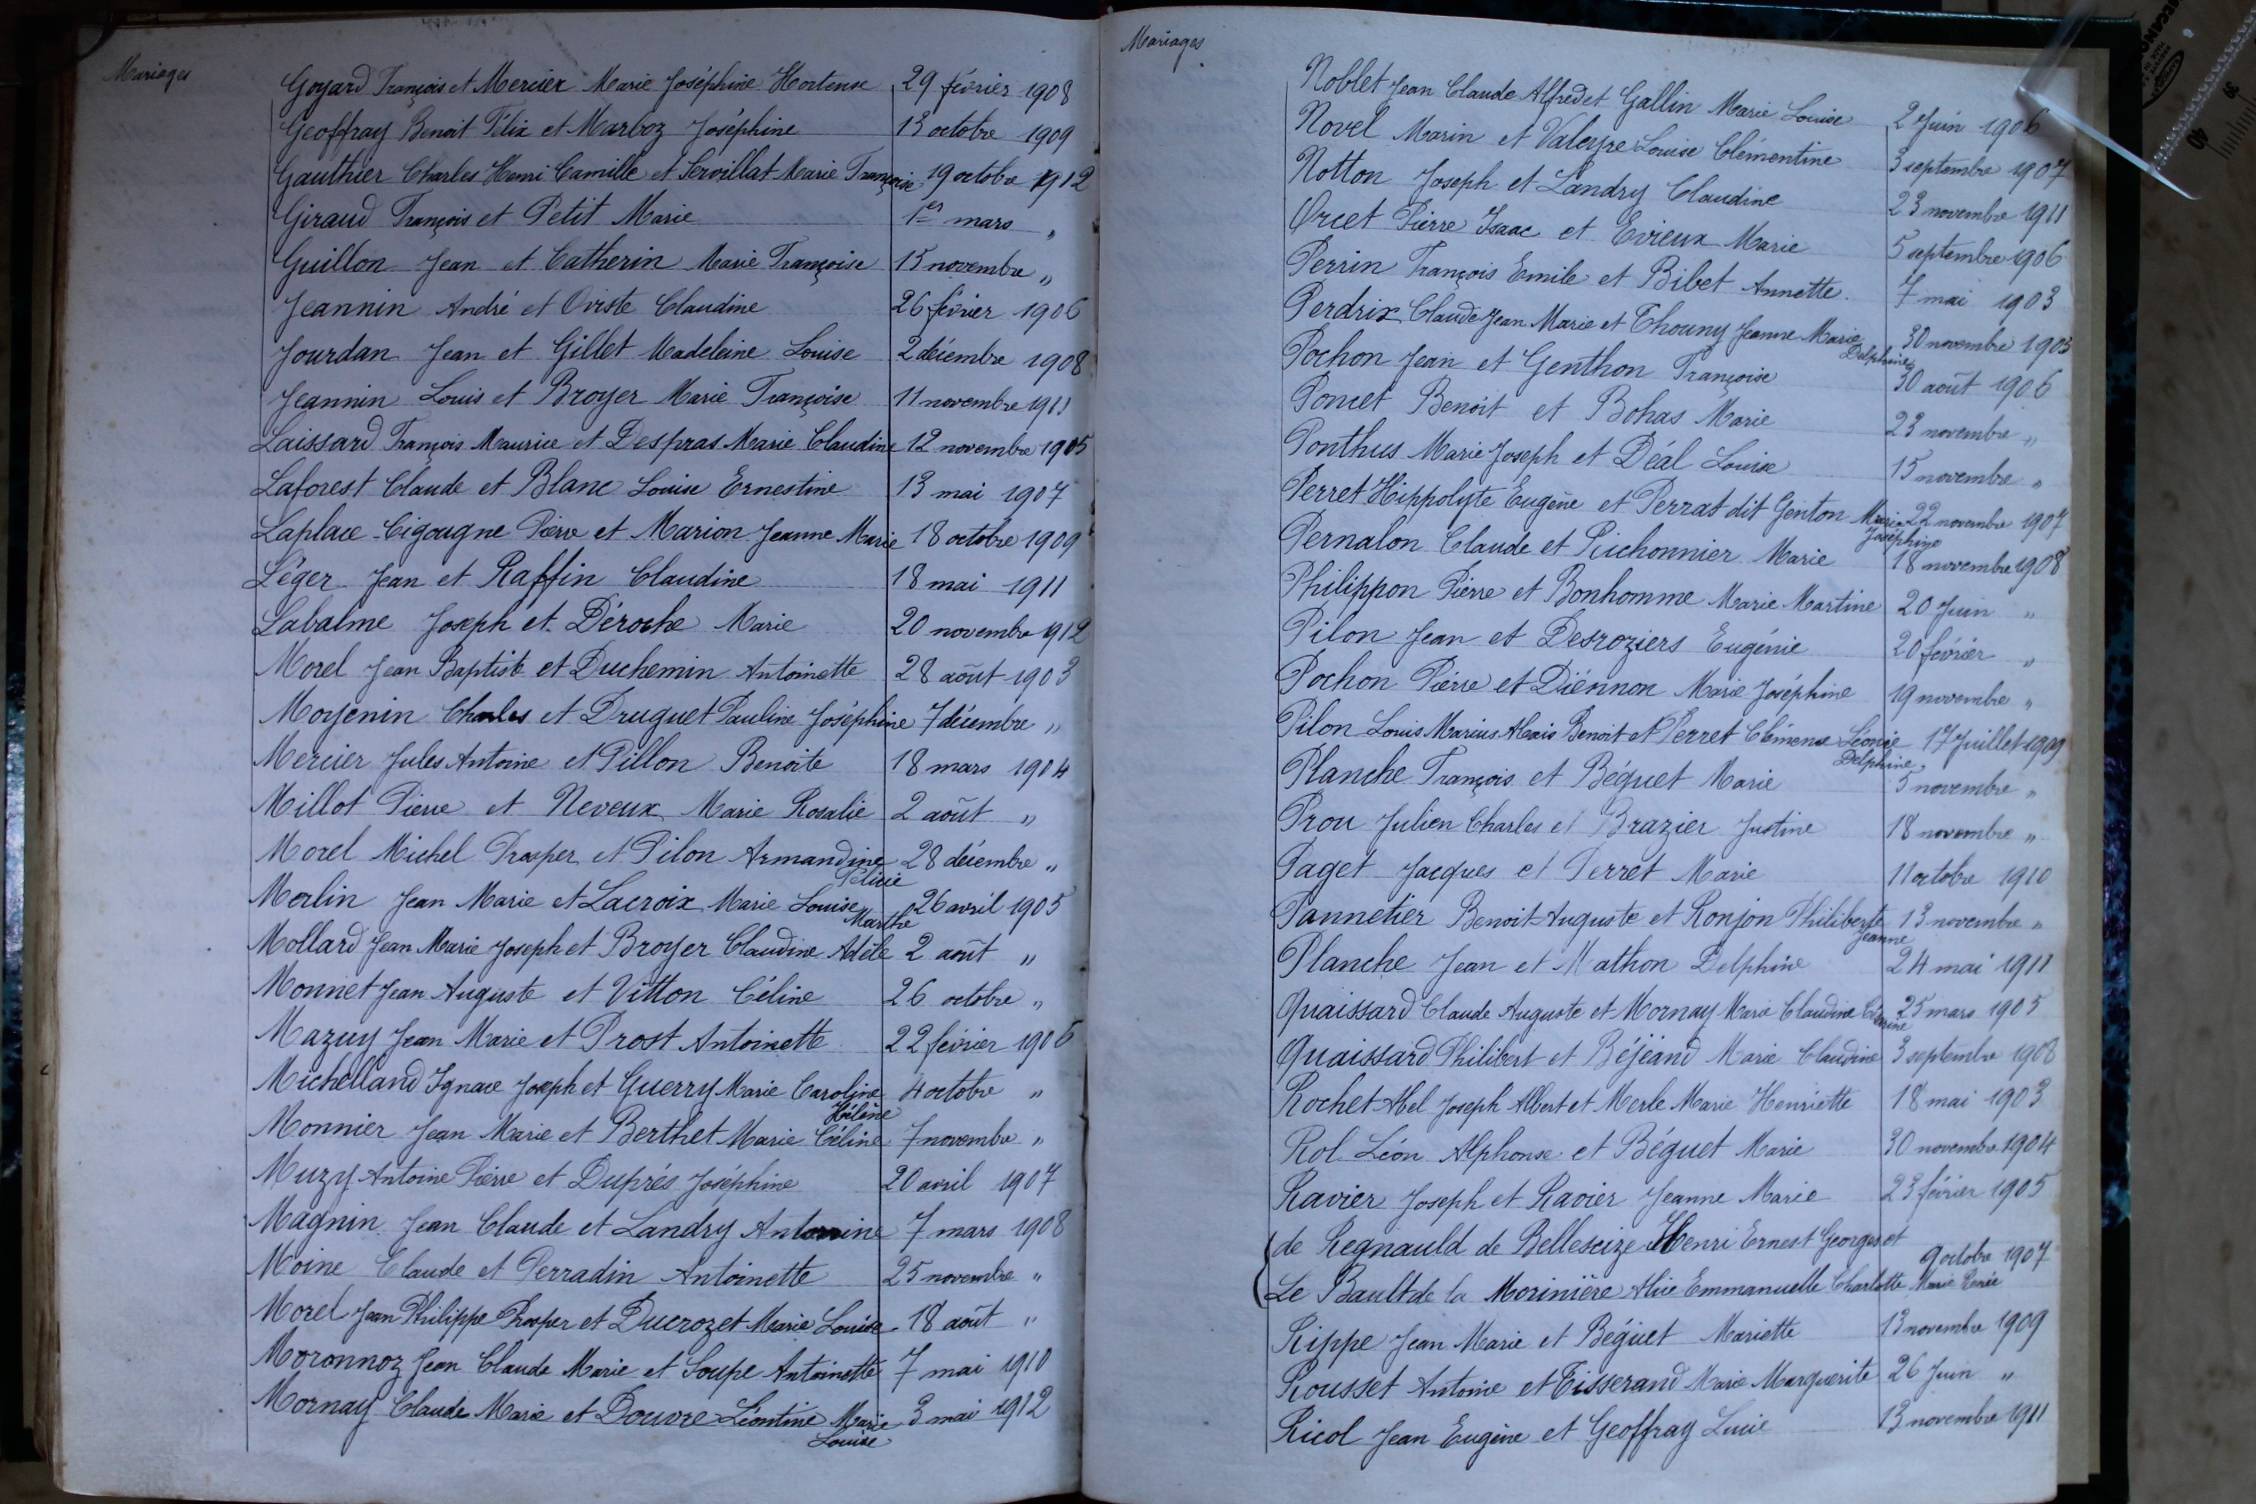 Mariages
Goyard François et Mercier Marie Joséphine Hortense 29 février 1908
Geoffray Benoit Félix et Marboz Joséphine 13 octobre 1909
Gauthier Charles Henri Camille et Servillat Marie Françoise 19 octobre 1912
Giraud François et Petit Marie 1er mars „
Guillon Jean et Catherin Marie Françoise 15 novembre „
Jeannin André et Oviste Claudine 26 février 1906
Jourdan Jean et Gillet Madeleine Louise 2 décembre 1908
Jeannin Louis et Broyer Marie Françoise 11 novembre 1911
Laissard François Maurice et Despras Marie Claudine 12 novembre 1905
Laforest Claude et Blanc Louise Ernestine 13 mai 1907
Laplace-Cigougne Pierre et Marion Jeanne Marie 18 octobre 1909
Léger Jean et Raffin Claudine 18 mai 1911
Labalme Joseph et Déroche Marie 20 novembre 1912
Morel Jean Baptiste et Duchemin Antoinette 28 août 1903
Moyenin Charles et Druguet Pauline Joséphine 7 décembre „
Mercier Jules Antoine et Pillon Benoite 18 mars 1904
Millot Pierre et Neveux Marie Rosalie 2 août „
Morel Michel Prosper et Pilon Armandine Félicie 28 décembre „
Merlin Jean Marie et Lacroix Marie Louise Marthe 26 avril 1905
Mollard Jean Marie Joseph et Broyer Claudine Adèle 2 août „
Monnet Jean Auguste et Vitton Céline 26 octobre „
Mazuy Jean Marie et Prost Antoinette 22 février 1906
Michelland Ignace Joseph et Guerry Marie Caroline Hélène 4 octobre „
Monnier Jean Marie et Berthet Marie Céline 7 novembre „
Muzy Antoine Pierre et Duprés Joséphine 20 avril 1907
Magnin Jean Claude et Landry Antonine 7 mars 1908
Moine Claude et Perradin Antoinette 25 novembre „
Morel Jean Philippe Prosper et Ducrozet Marie Louise 18 août „
Moronnoz Jean Claude Marie et Soupe Antoinette 7 mai 1910
Mornay Claude Marie et Douvre Léontine Marie Louise 3 mai 1912
Mariages
Noblet Jean Claude Alfred et Gallin Marie Louise 2 Juin 1906
Novel Marin et Valeyre Louise Clémentine 3 septembre 1907
Notton Joseph et Landry Claudine 23 novembre 1911
Orcet Pierre Isaac et Evieux Marie 5 septembre 1906
Perrin François Emile et Bibet Annette 7 mai 1903
Perdrix Claude Jean Marie et Thouny Jeanne Marie Delphine 30 novembre 1905
Pochon Jean et Genthon Françoise 30 août 1906
Poncet Benoit et Bohas Marie 23 novembre „
Ponthus Marie Joseph et Déal Louise 15 novembre „
Perret Hippolyte Eugène et Perrat dit Genton Marie Joséphine 22 novembre 1907
Pernalon Claude et Richonnier Marie 18 novembre 1908
Philippon Pierre et Bonhomme Marie Martine 20 Juin „
Pilon Jean et Desroziers Eugénie 20 février „
Pochon Pierre et Diénnon Marie Joséphine 19 novembre „
Pilon Louis Marius Alexis Benoit et Perret Clémence Léonie Delphine 17 Juillet 1909
Planche François et Béguet Marie 5 novembre „
Prou Julien Charles et Brazier Justine 18 novembre „
Paget Jacques et Perret Marie 11 octobre 1910
Pannetier Benoit-Auguste et Ronjon Philiberte Jeanne 13 novembre „
Planche Jean et Mathon Delphine 24 mai 1911
Quaissard Claude Auguste et Mornay Marie Claudine 25 mars 1905
Quaissard Philibert et Béjéand Marie Claudine 3 septembre 1908
Rochet Abel Joseph Albert et Merle Marie Henriette 18 mai 1903
Rol Léon Alphonse et Béguet Marie 30 novembre 1904
Ravier Joseph et Ravier Jeanne Marie 23 février 1905
de Regnauld de Bellescize Henri Ernest Georges et 9 octobre 1907
Le Bault de la Morinière Alice Emmanuelle Charlotte Marie Renée
Rippe Jean Marie et Béguet Mariette 13 novembre 1909
Rousset Antoine et Tisserand Marie Marguerite 26 Juin „
Ricol Jean Eugène et Geoffray Lucie 13 novembre 1911